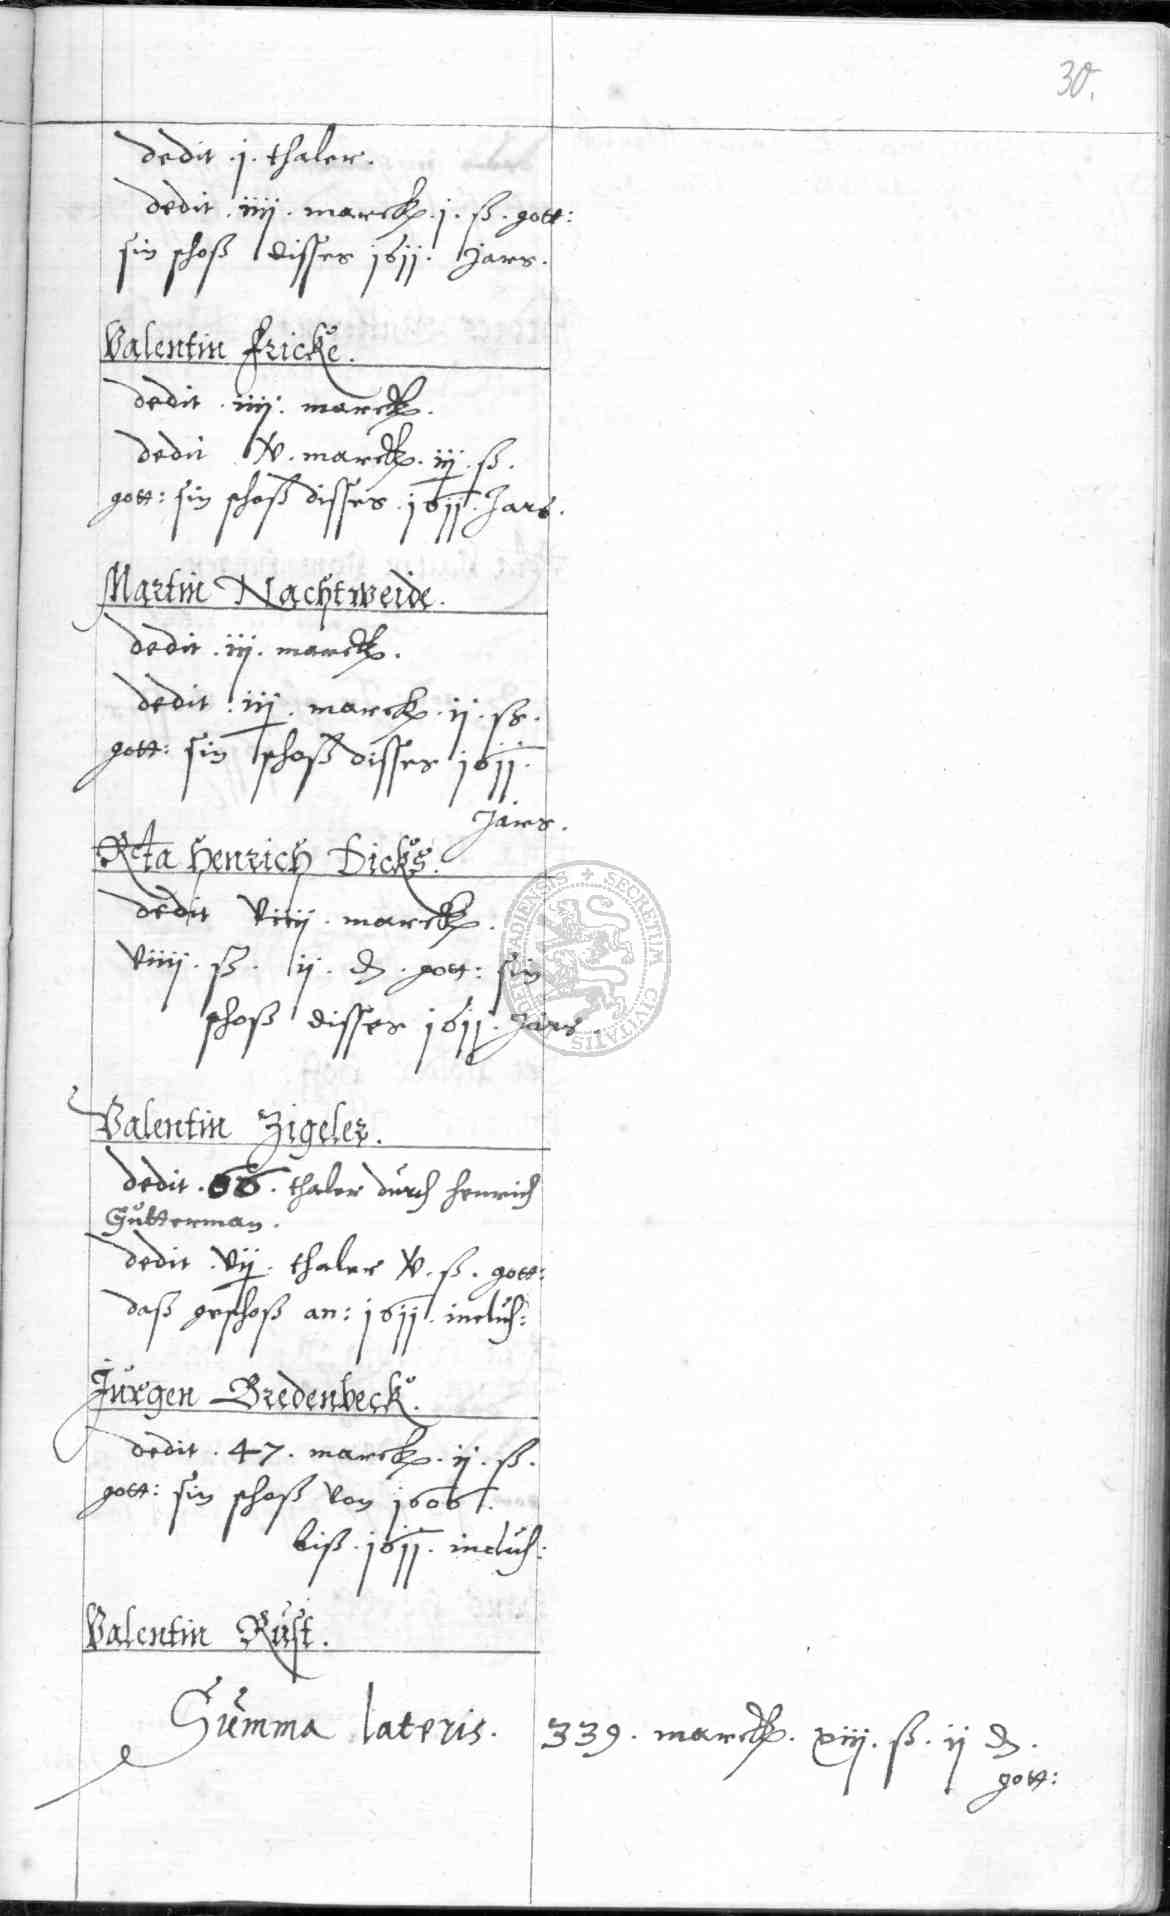 30.
dedit .j. thaler.
dedit .iiij. marck .j. ß. gott:
sin schoß disses 1611. Jars.
Valentin Fricke.
dedit .iiij. marck.
dedit .x. marck. iij. ß.
gott: sin schoß disses .1611. Jars.
Martin Nachtweide.
dedit .iij. marck.
dedit .iij. marck .ij. ß.
gott: sin schoß disses 1611.
Jars.
Rcta Henrich Dicks.
dedit viiij. marck.
viiij. ß. ij. d. gott: sin
schoß disses 1611. Jars.
SECRETUM CIVITATIS
Valentin Zigeler.
dedit .66. thaler durch Henrich
Gutterman.
dedit .vij. thaler x. ß. gott:
daß geschoß an: 1611. inclus:
Jurgen Bredenbeck.
dedit .47. marck .ij. ß.
gott: sin schoß von 1606.
biß .1611. inclus:
Valentin Rust.
Summa lateris. 339. marck. xiij. ß. ij d.
gott: